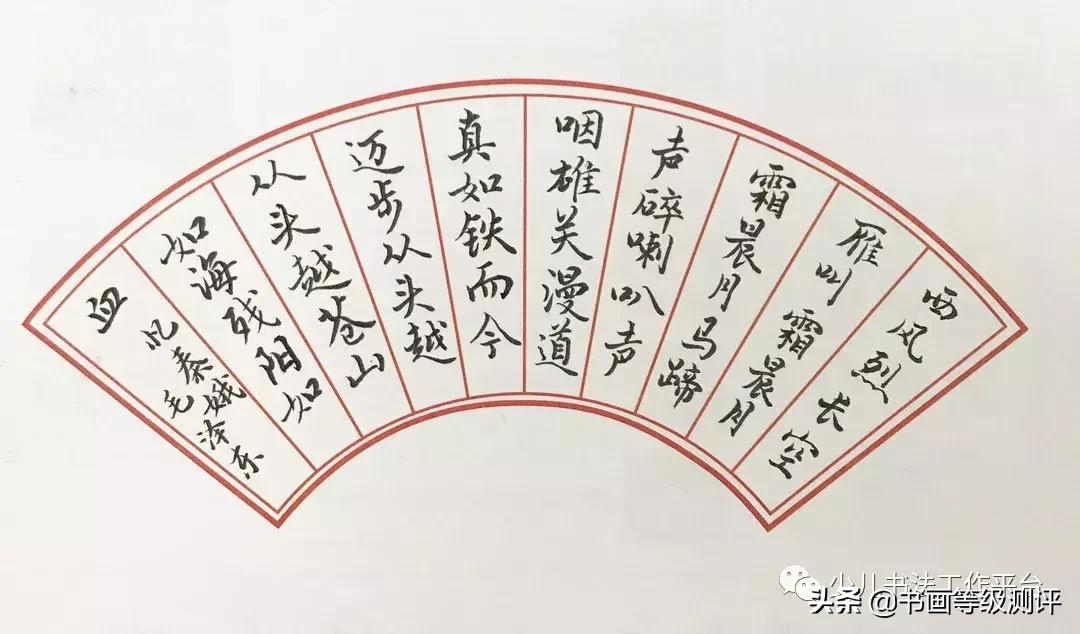 西风烈长空
雁叫霜晨月
霜晨月马蹄
声碎喇叭声
咽雄关漫道
真如铁而今
迈步从头越
从头越苍山
如海残阳如
血
忆秦娥
毛泽东
少儿书法工作平台
头条 @书画等级测评